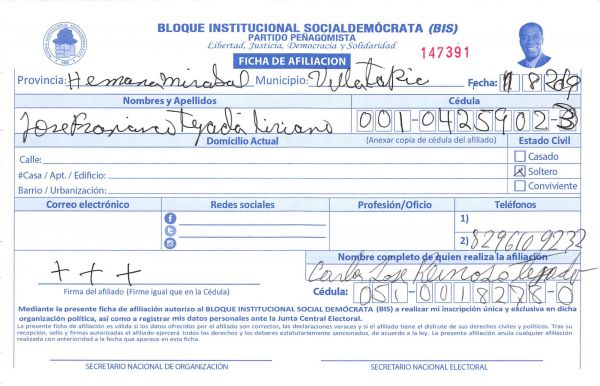 BLOQUE INSTITUCIONAL SOCIALDEMÓCRATA (BIS)
PARTIDO PEÑAGOMISTA
Libertad, Justicia, Democracia y Solidaridad
FICHA DE AFILIACION
147391
Provincia: Hermana Mirabal Municipio: Villa Tapia Fecha:
Nombres y Apellidos Cédula
Jose Francisco Tejada Liriano 001-0425902-3
Domicilio Actual (Anexar copia de cédula del afiliado) Estado Civil
Calle: Casado
#Casa / Apt. / Edificio: X Soltero
Barrio / Urbanización: Conviviente
Correo electrónico Redes sociales Profesión/Oficio Teléfonos
1)
2) 8296109232
Nombre completo de quien realiza la afiliación
+ + + Carlos Jose Reinoso Tejada
Firma del afiliado (Firme igual que en la Cédula) Cédula: 051-0018278-0
Mediante la presente ficha de afiliación autorizo al BLOQUE INSTITUCIONAL SOCIAL DEMÓCRATA (BIS) a realizar mi inscripción única y exclusiva en dicha
organización política, así como a registrar mis datos personales ante la Junta Central Electoral.
La presente ficha de afiliación es válida si los datos ofrecidos por el afiliado son correctos, las declaraciones veraces y si el afiliado tiene el disfrute de sus derechos civiles y políticos. Tras su
recepción, sello y firmas autorizadas el afiliado ejercerá todos los derechos y los deberes estatutariamente sancionados, de acuerdo a la ley. La presente afiliación anula cualquier afiliación
realizada con anterioridad a la fecha que aparece en esta ficha.
SECRETARIO NACIONAL DE ORGANIZACIÓN SECRETARIO NACIONAL ELECTORAL